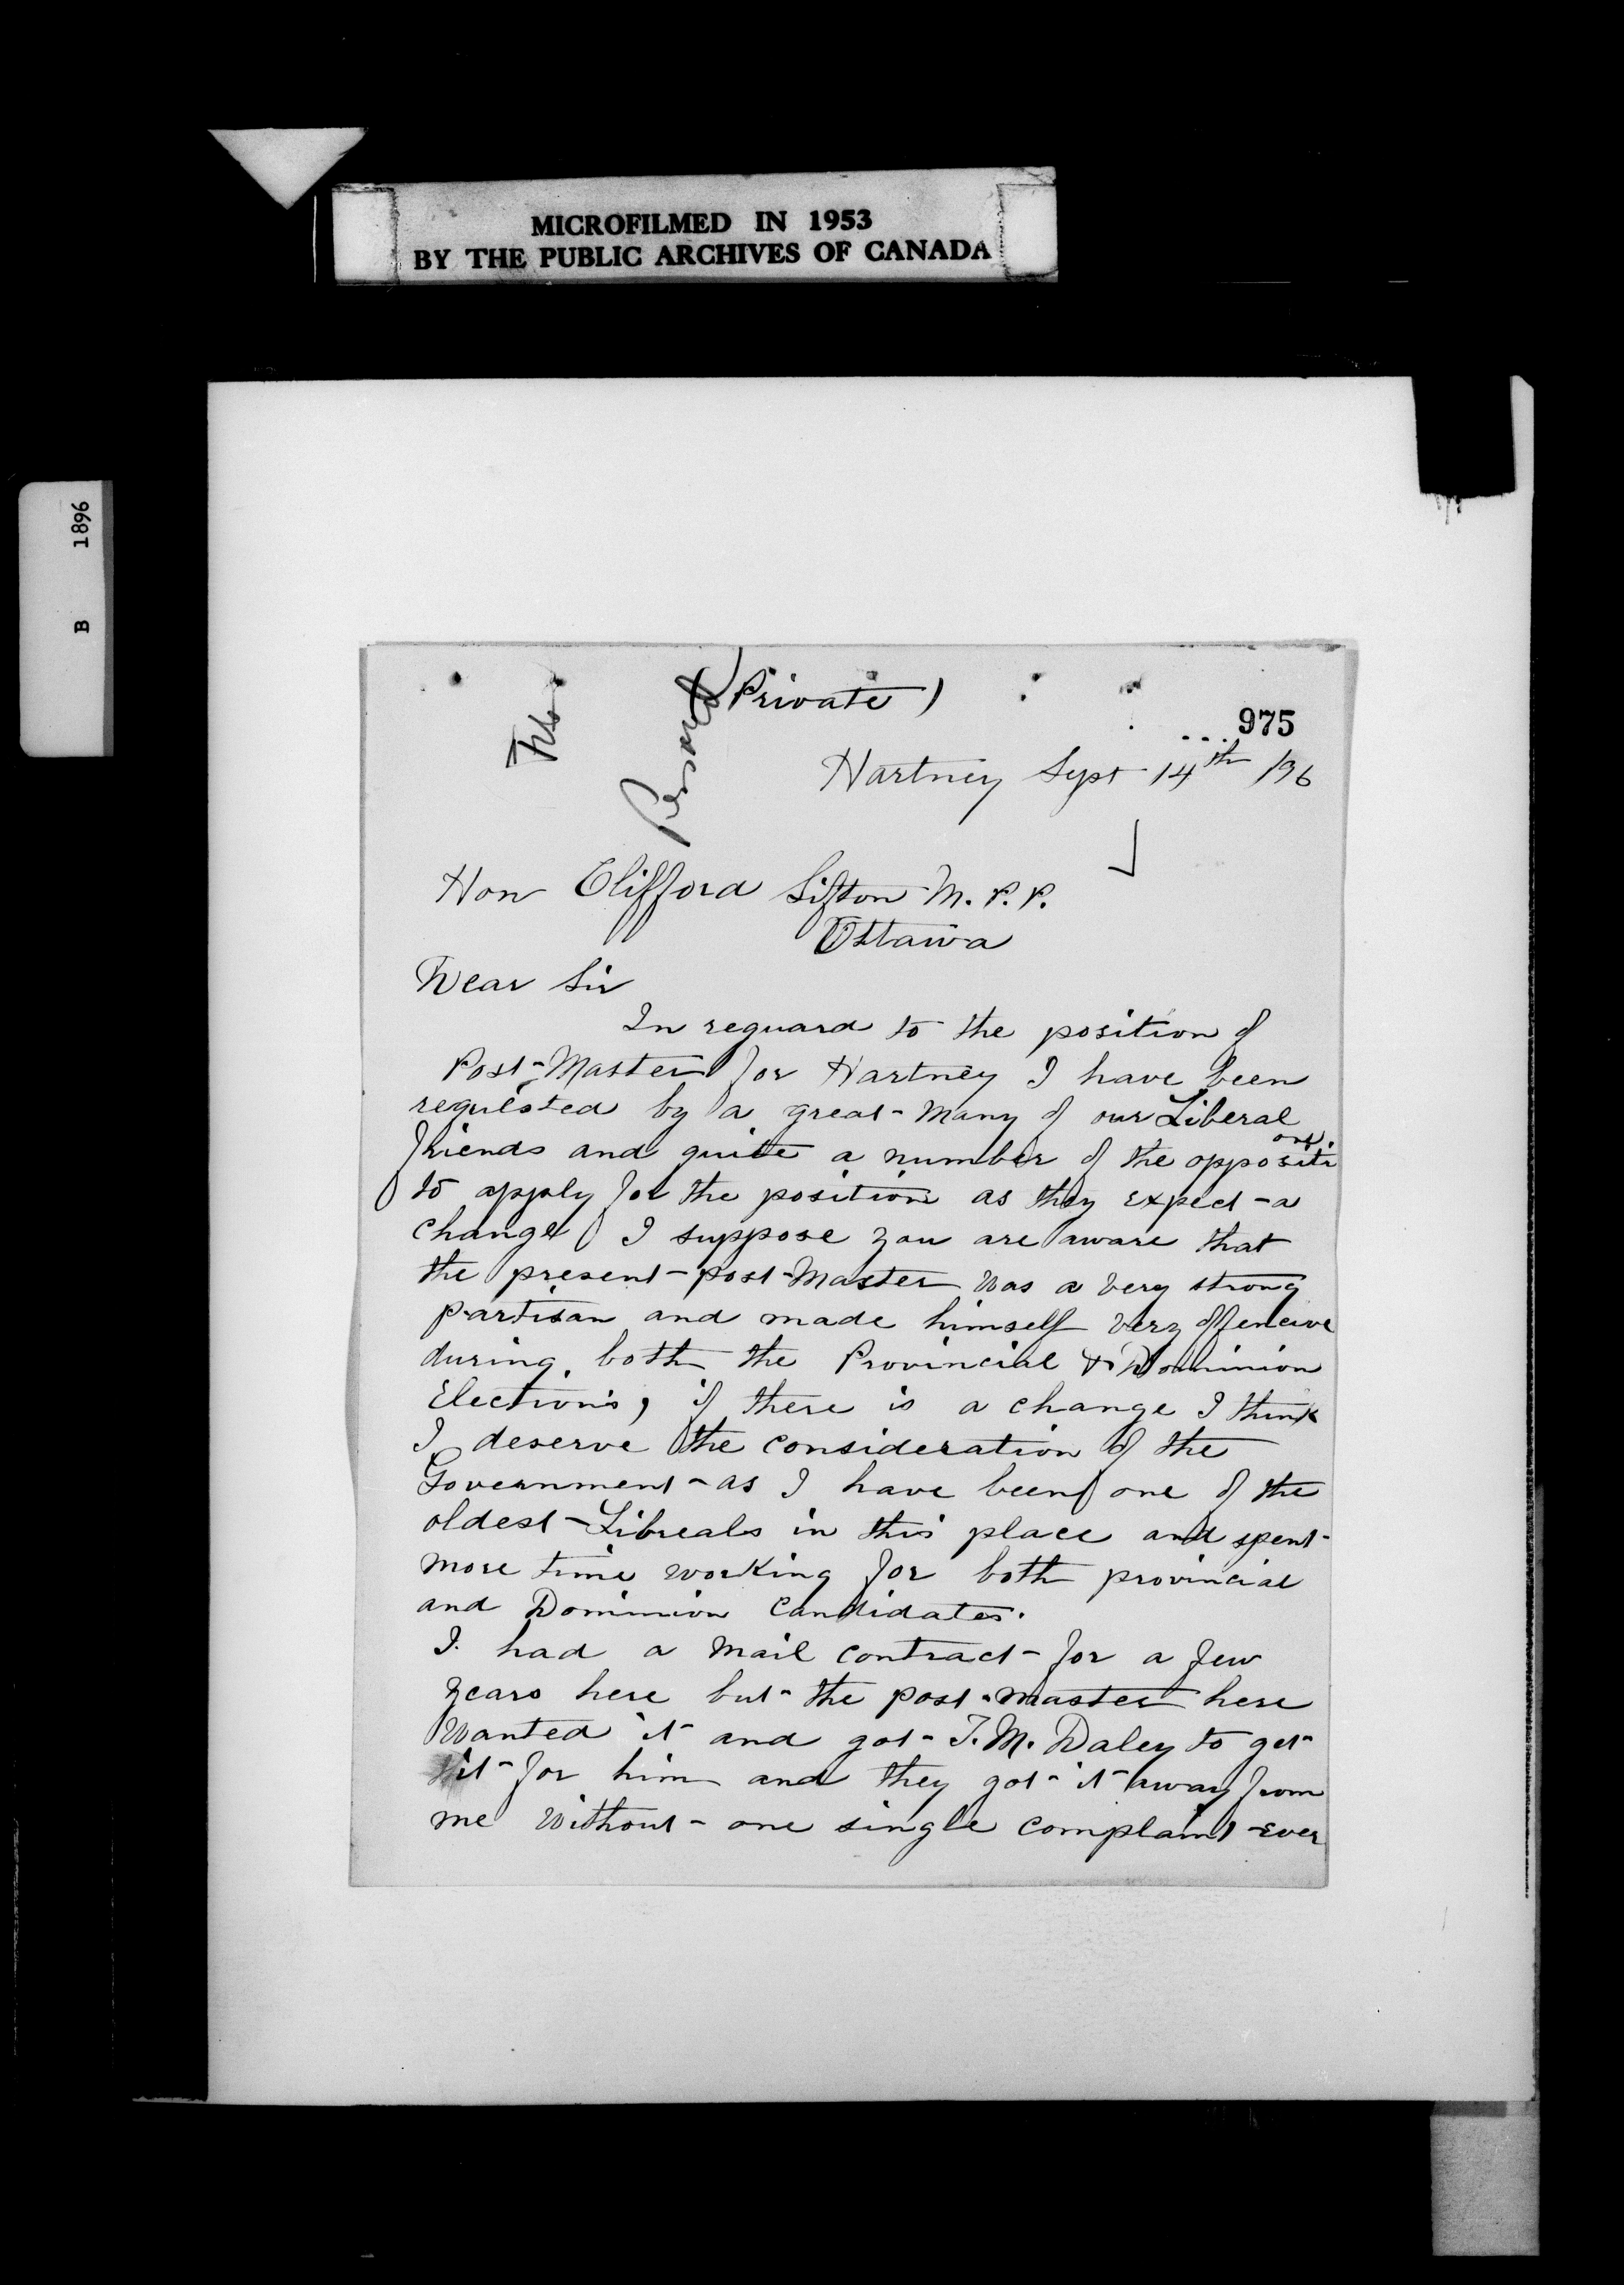 MICROFILMED IN 1953
BY THE PUBLIC ARCHIVES OF CANADA
B 1896
(Private)
Personal
975
Hartney Sept 14th /96
Hon Clifford Sifton M.P.P.
Ottawa
Dear Sir
In reguard to the position of
Post-Master for Hartney I have been
requested by a great many of our Liberal
friends and quite a number of the opposition
to apply for the position as they expect a
change I suppose you are aware that
the present post-Master was a very strong
partisan and made himself very offencive
during both the Provincial & Dominion
Elections, if there is a change I think
I deserve the consideration of the
Government as I have been one of the
oldest Libreals in this place and spent
more time working for both provincial
and Dominion Candidates.
I had a mail contract for a few
years here but the post-master here
wanted it and got T.M. Daley to get
it for him and they got it away from
me without one single complaint ever